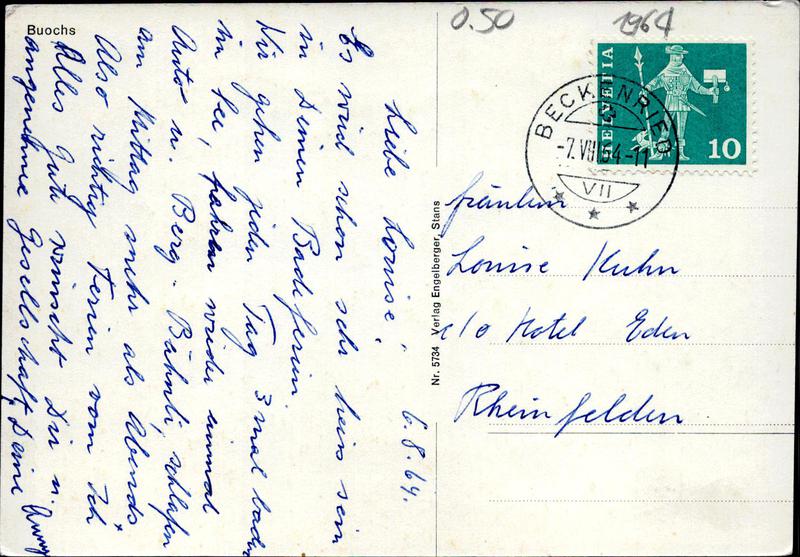 Buochs
0.50
1964
HELVETIA
10
BECKENRIED
-7.VIII.64-11
VII
Nr. 5734 Verlag Engelberger, Stans
6.8.64.
Liebe Louise!
Es wird schon sehr heiss sein
in Deinen Badeferien.
Wir gehen jeden Tag 3 mal baden
im See, fahren wieder einmal
Auto u. Berg. Bähnli, schlafen
am Mittag mehr als Abends
Also richtig Ferien vom Ich
Alles Gute wünscht Dir u.
angenehme Gesellschaft, Deine
Fräulein
Louise Kuhn
c/o Hotel Eden
Rheinfelden